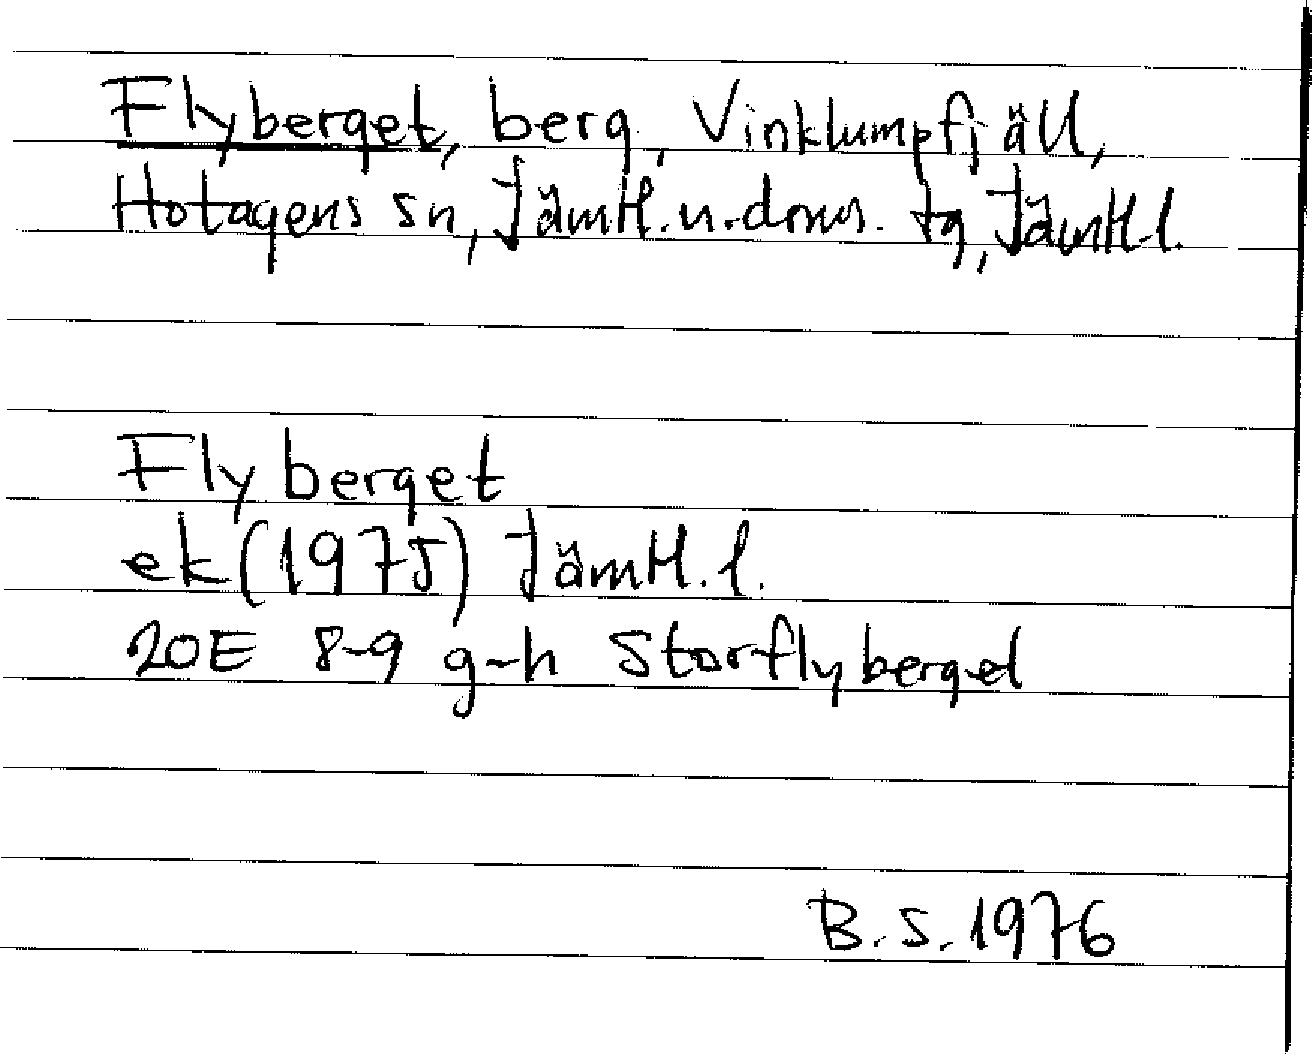 Flyberget, berg, Vinklumpfjäll,
Hotagens sn, Jämtl. n. doms. tg, Jämtl. l.
Flyberget
ek (1975) Jämtl. l.
20E 8-9 g-h Storflyberget
B.S. 1976